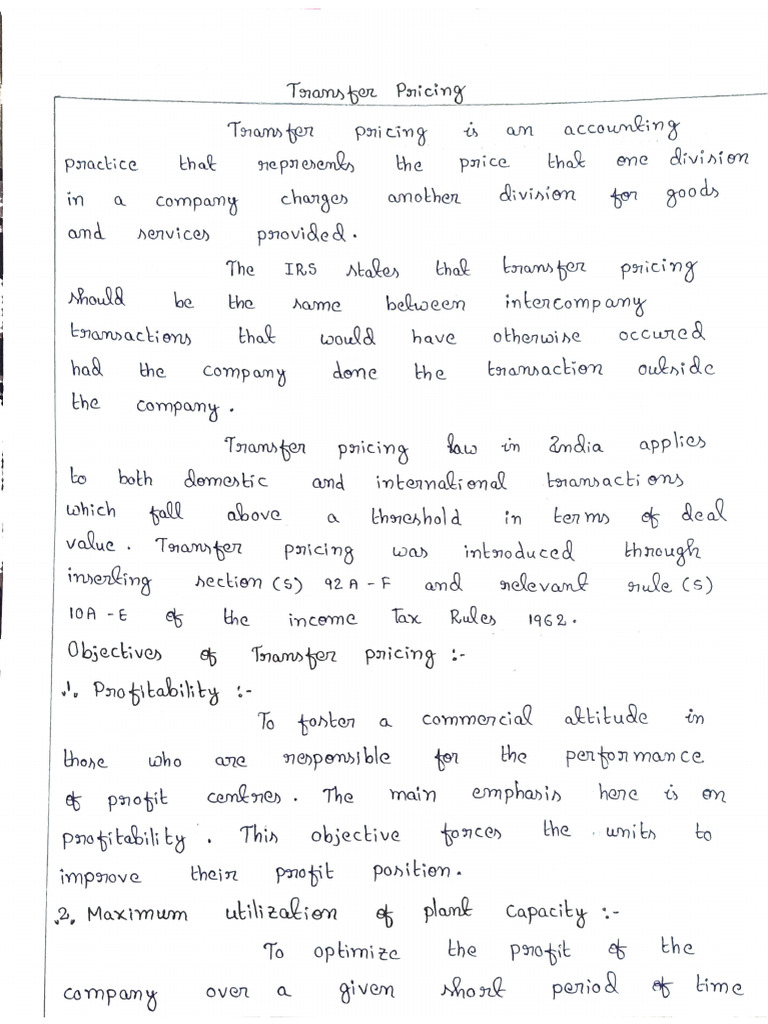 Transfer Pricing
Transfer pricing is an accounting
practice that represents the price that one division
in a company charges another division for goods
and services provided.
The IRS states that transfer pricing
should be the same between intercompany
transactions that would have otherwise occured
had the company done the transaction outside
the company.
Transfer pricing law in India applies
to both domestic and international transactions
which fall above a threshold in terms of deal
value. Transfer pricing was introduced through
inserting section(s) 92A-F and relevant rule(s)
10A-E of the income Tax Rules 1962.
Objectives of Transfer pricing :-
1. Profitability :-
To foster a commercial attitude in
those who are responsible for the performance
of profit centres. The main emphasis here is on
profitability. This objective forces the units to
improve their profit position.
2. Maximum utilization of plant capacity :-
To optimize the profit of the
company over a given short period of time